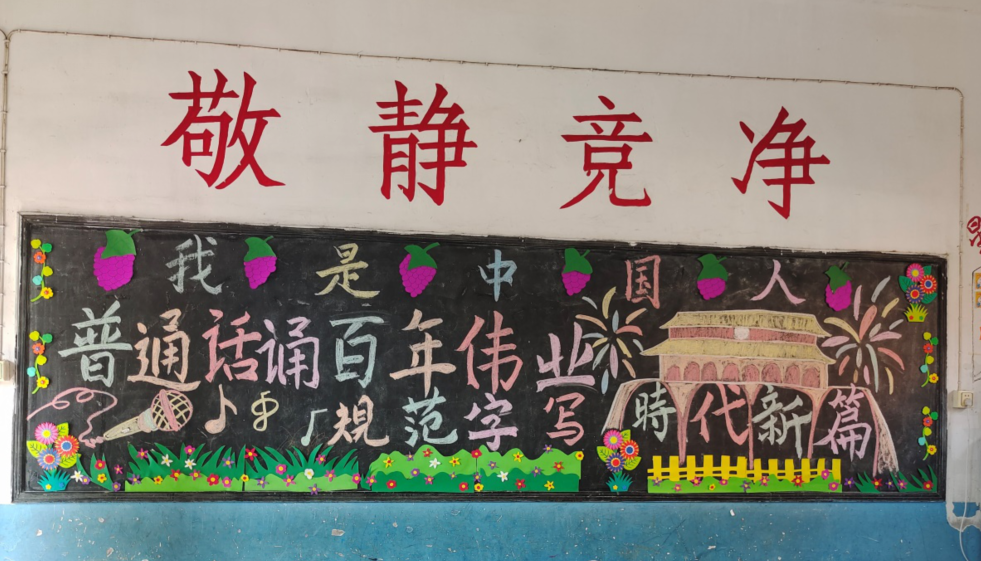 敬静竞净
我是中国人
普通话诵百年伟业
規范字写時代新篇